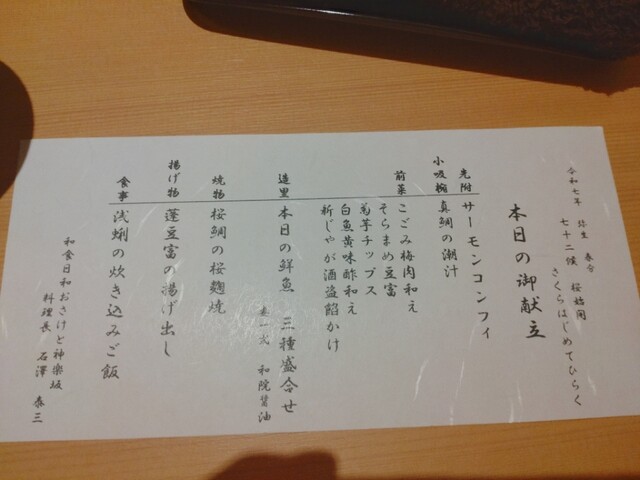 令和七年 弥生 春分
七十二候 桜始開
さくらはじめてひらく
本日の御献立
先附 サーモンコンフィ
小吸椀 真鯛の潮汁
前菜 こごみ梅肉和え
そらまめ豆富
菊芋チップス
白魚黄味酢和え
新じゃが酒盗餡かけ
造里 本日の鮮魚 三種盛合せ
和院醤油
焼物 桜鯛の桜麹焼
揚げ物 蓬豆富の揚げ出し
食事 浅蜊の炊き込みご飯
和食日和おさけと神楽坂
料理長 石澤 泰三